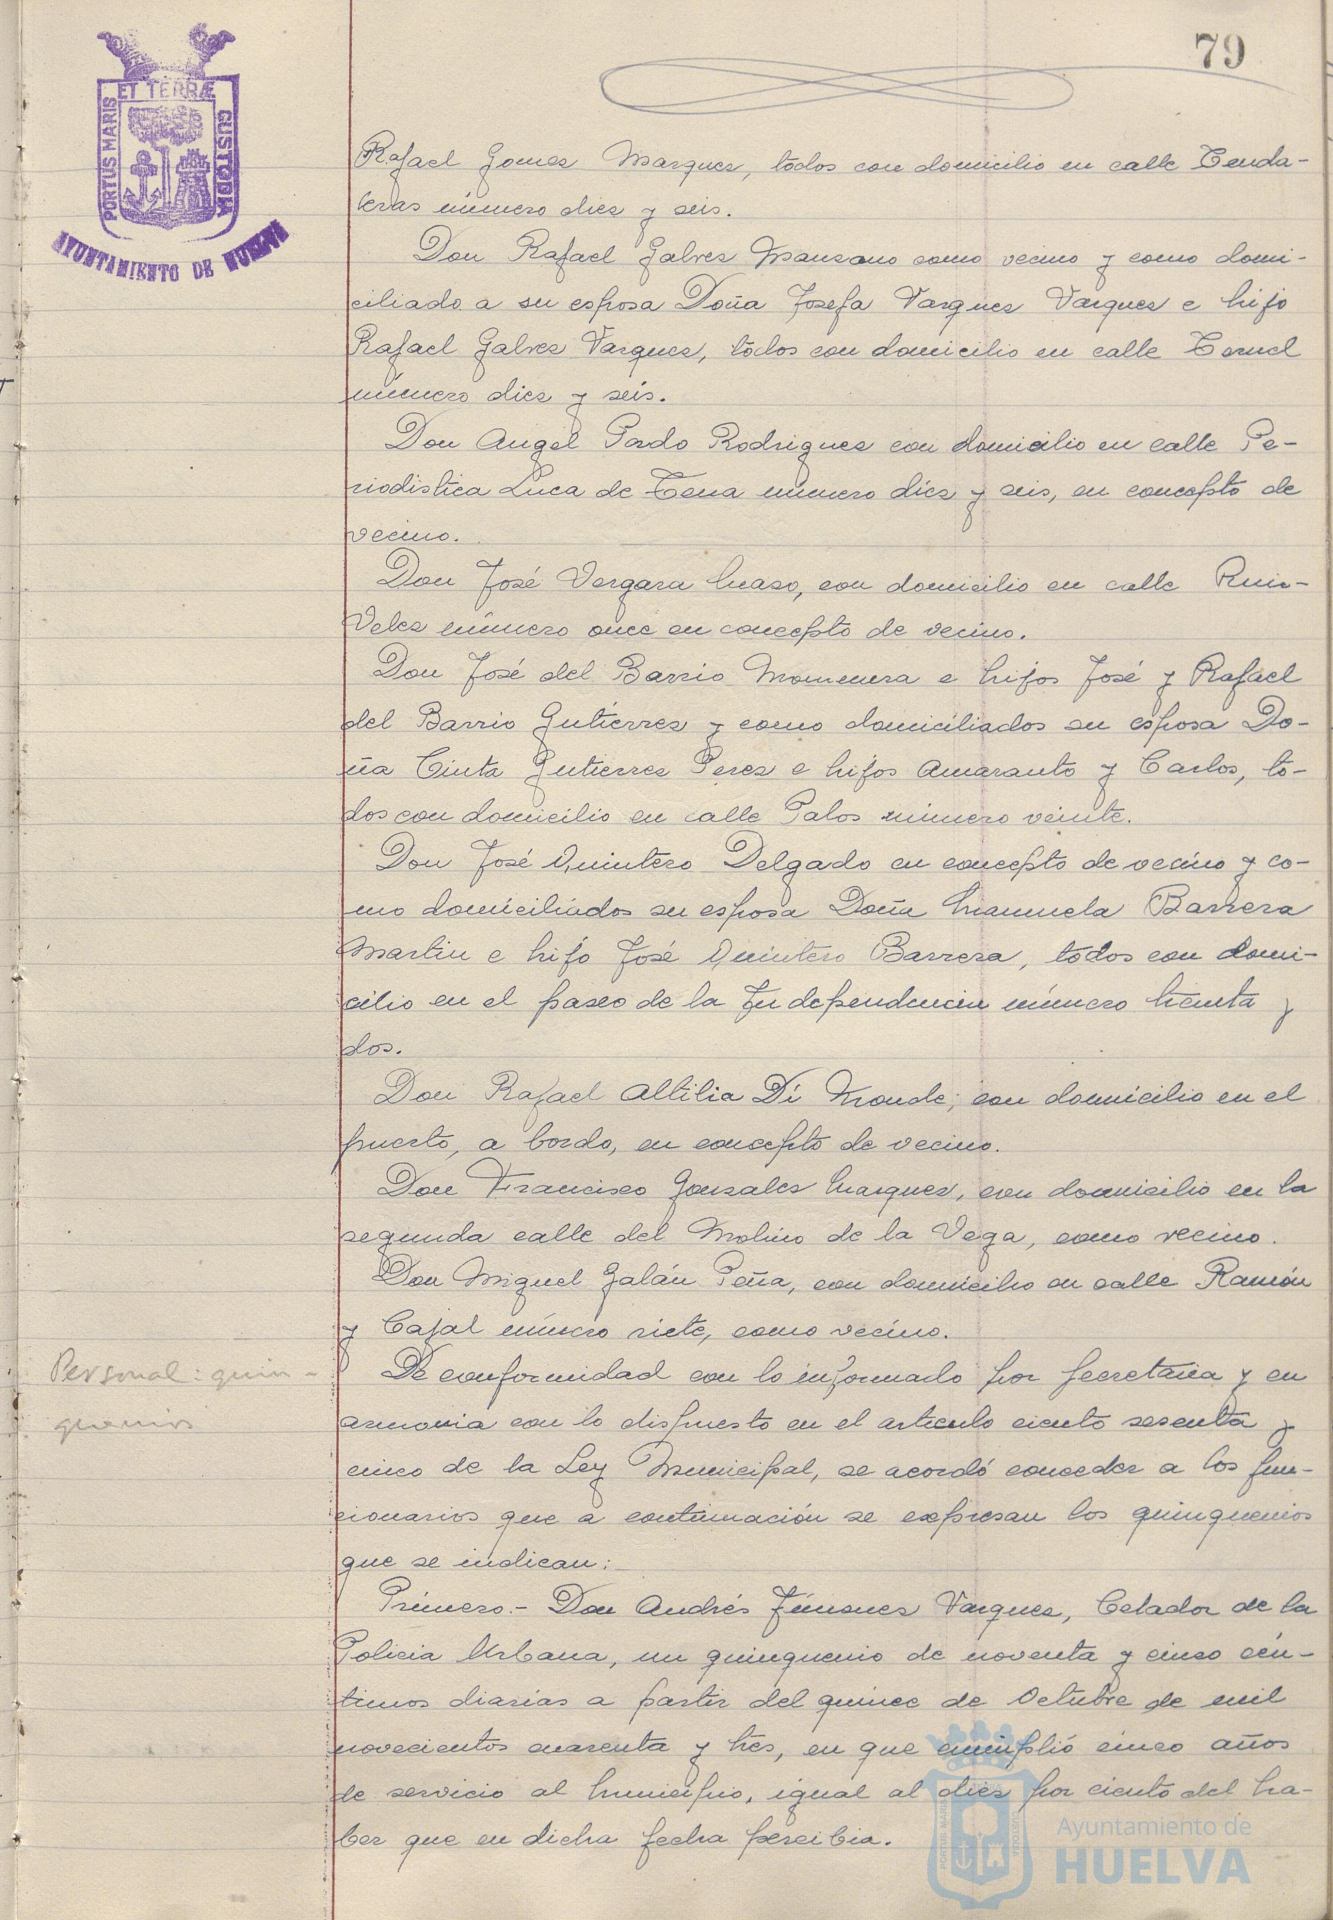 79
PORTUS MARIS ET TERRÆ CUSTODIA
AYUNTAMIENTO DE HUELVA
Rafael Gomez Marquez, todos con domicilio en calle Tenda-
leras número diez y seis.
Don Rafael Galvez Manzano como vecino y como domi-
ciliado a su esposa Doña Josefa Vazquez Vazquez e hijo
Rafael Galvez Vazquez, todos con domicilio en calle Teruel
número diez y seis.
Don Angel Pardo Rodriguez con domicilio en calle Pe-
riodistica Luca de Tena número diez y seis, en concepto de
vecino.
Don José Vergara Maso, con domicilio en calle Ruiz-
Velez número once en concepto de vecino.
Don José del Barrio e hijos José y Rafael
del Barrio Gutierrez y como domiciliados su esposa Do-
ña Cinta Gutierrez Perez e hijos Amaranto y Carlos, to-
dos con domicilio en calle Palos número veinte.
Don José Quintero Delgado en concepto de vecino y co-
mo domiciliados su esposa Doña Manuela Barrera
Martin e hijo José Quintero Barrera, todos con domi-
cilio en el paseo de la Independencia número treinta y
dos.
Don Rafael Altilia Di Monde, con domicilio en el
puerto, a bordo, en concepto de vecino.
Don Francisco Gonzalez Marquez, con domicilio en la
segunda calle del Molino de la Vega, como vecino.
Don Miguel Galán Peña, con domicilio en calle Ramón
y Cajal número siete, como vecino.
Personal: quin-
quenios
De conformidad con lo informado por Secretaria y en
armonia con lo dispuesto en el articulo ciento sesenta y
cinco de la Ley Municipal, se acordó conceder a los fun-
cionarios que a continuación se expresan los quinquenios
que se indican:
Primero.- Don Andrés Jimenez Vazquez, Celador de la
Policia Urbana, un quinquenio de noventa y cinco cén-
timos diarias a partir del quince de Octubre de mil
novecientos cuarenta y tres, en que cumplió cinco años
de servicio al Municipio, igual al diez por ciento del ha-
ber que en dicha fecha percibia.
Ayuntamiento de
HUELVA